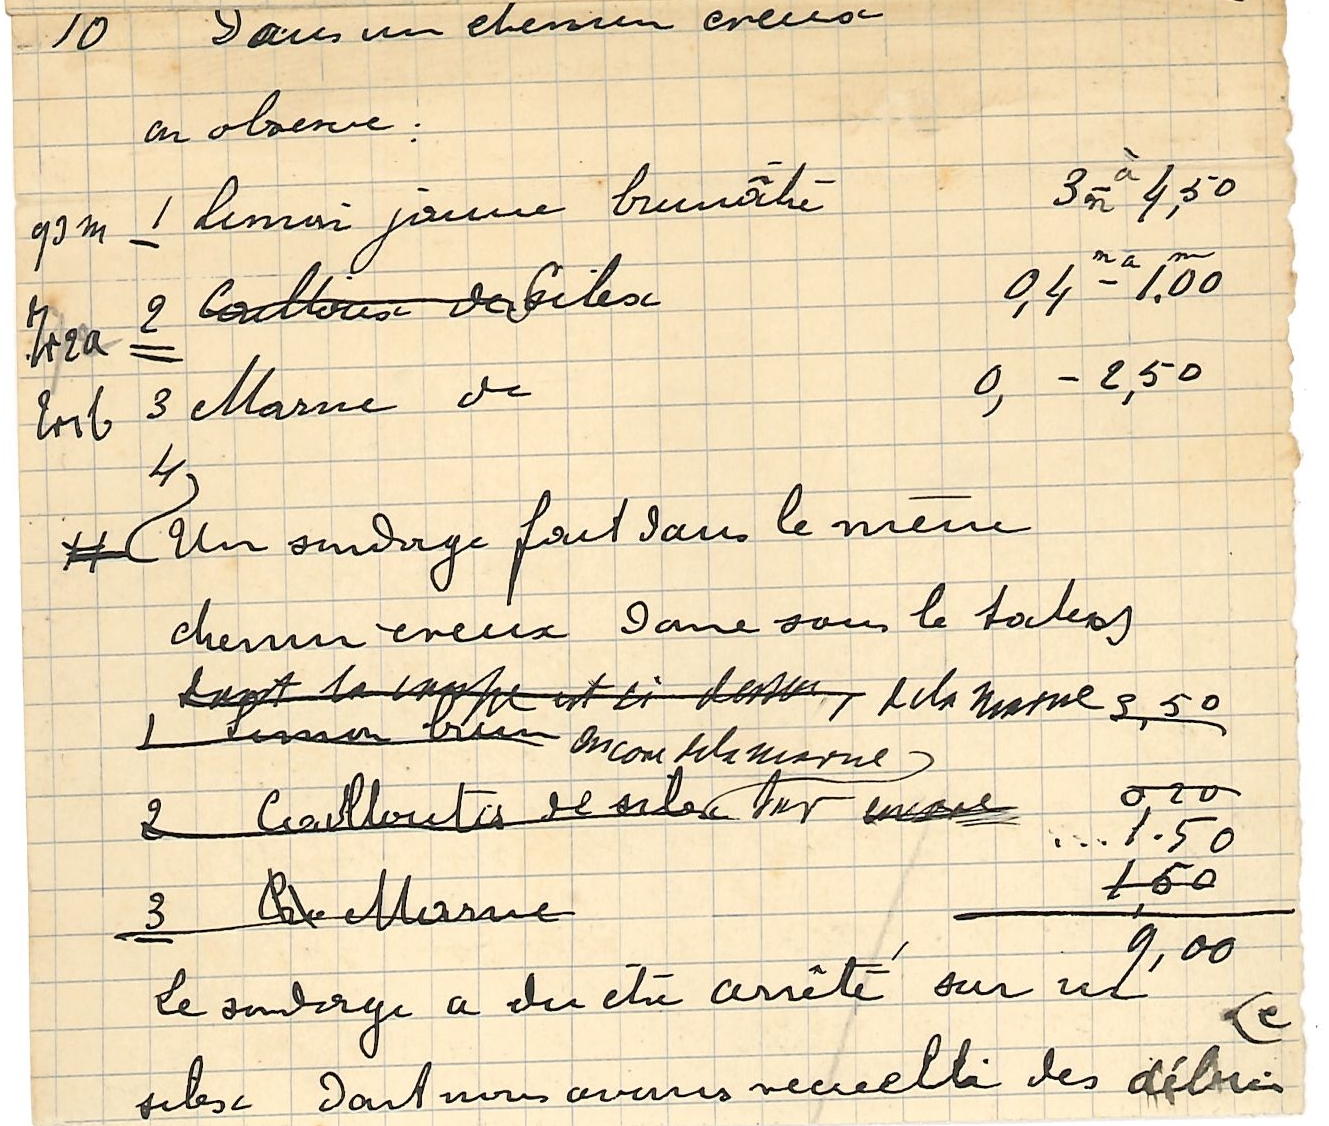 10 Dans un chemin creux
on observe :
q3m 1 Limon jaune brunâtre 3m à 4,50
2 Cailloux de Silex 0,4 m à - 1.00 m
3 Marne de 0, - 2,50
4
Un sondage fait dans le même
chemin creux donne sous le talus
dont la coupe est ci dessus, de la marne 3,50
1 Limon brun encore de la marne
2 Cailloutis de silex sur 0,20
... 1.50
3 Marne 1,50
9,00
Le sondage a du être arrêté sur un
silex dont nous avons recueilli des débris